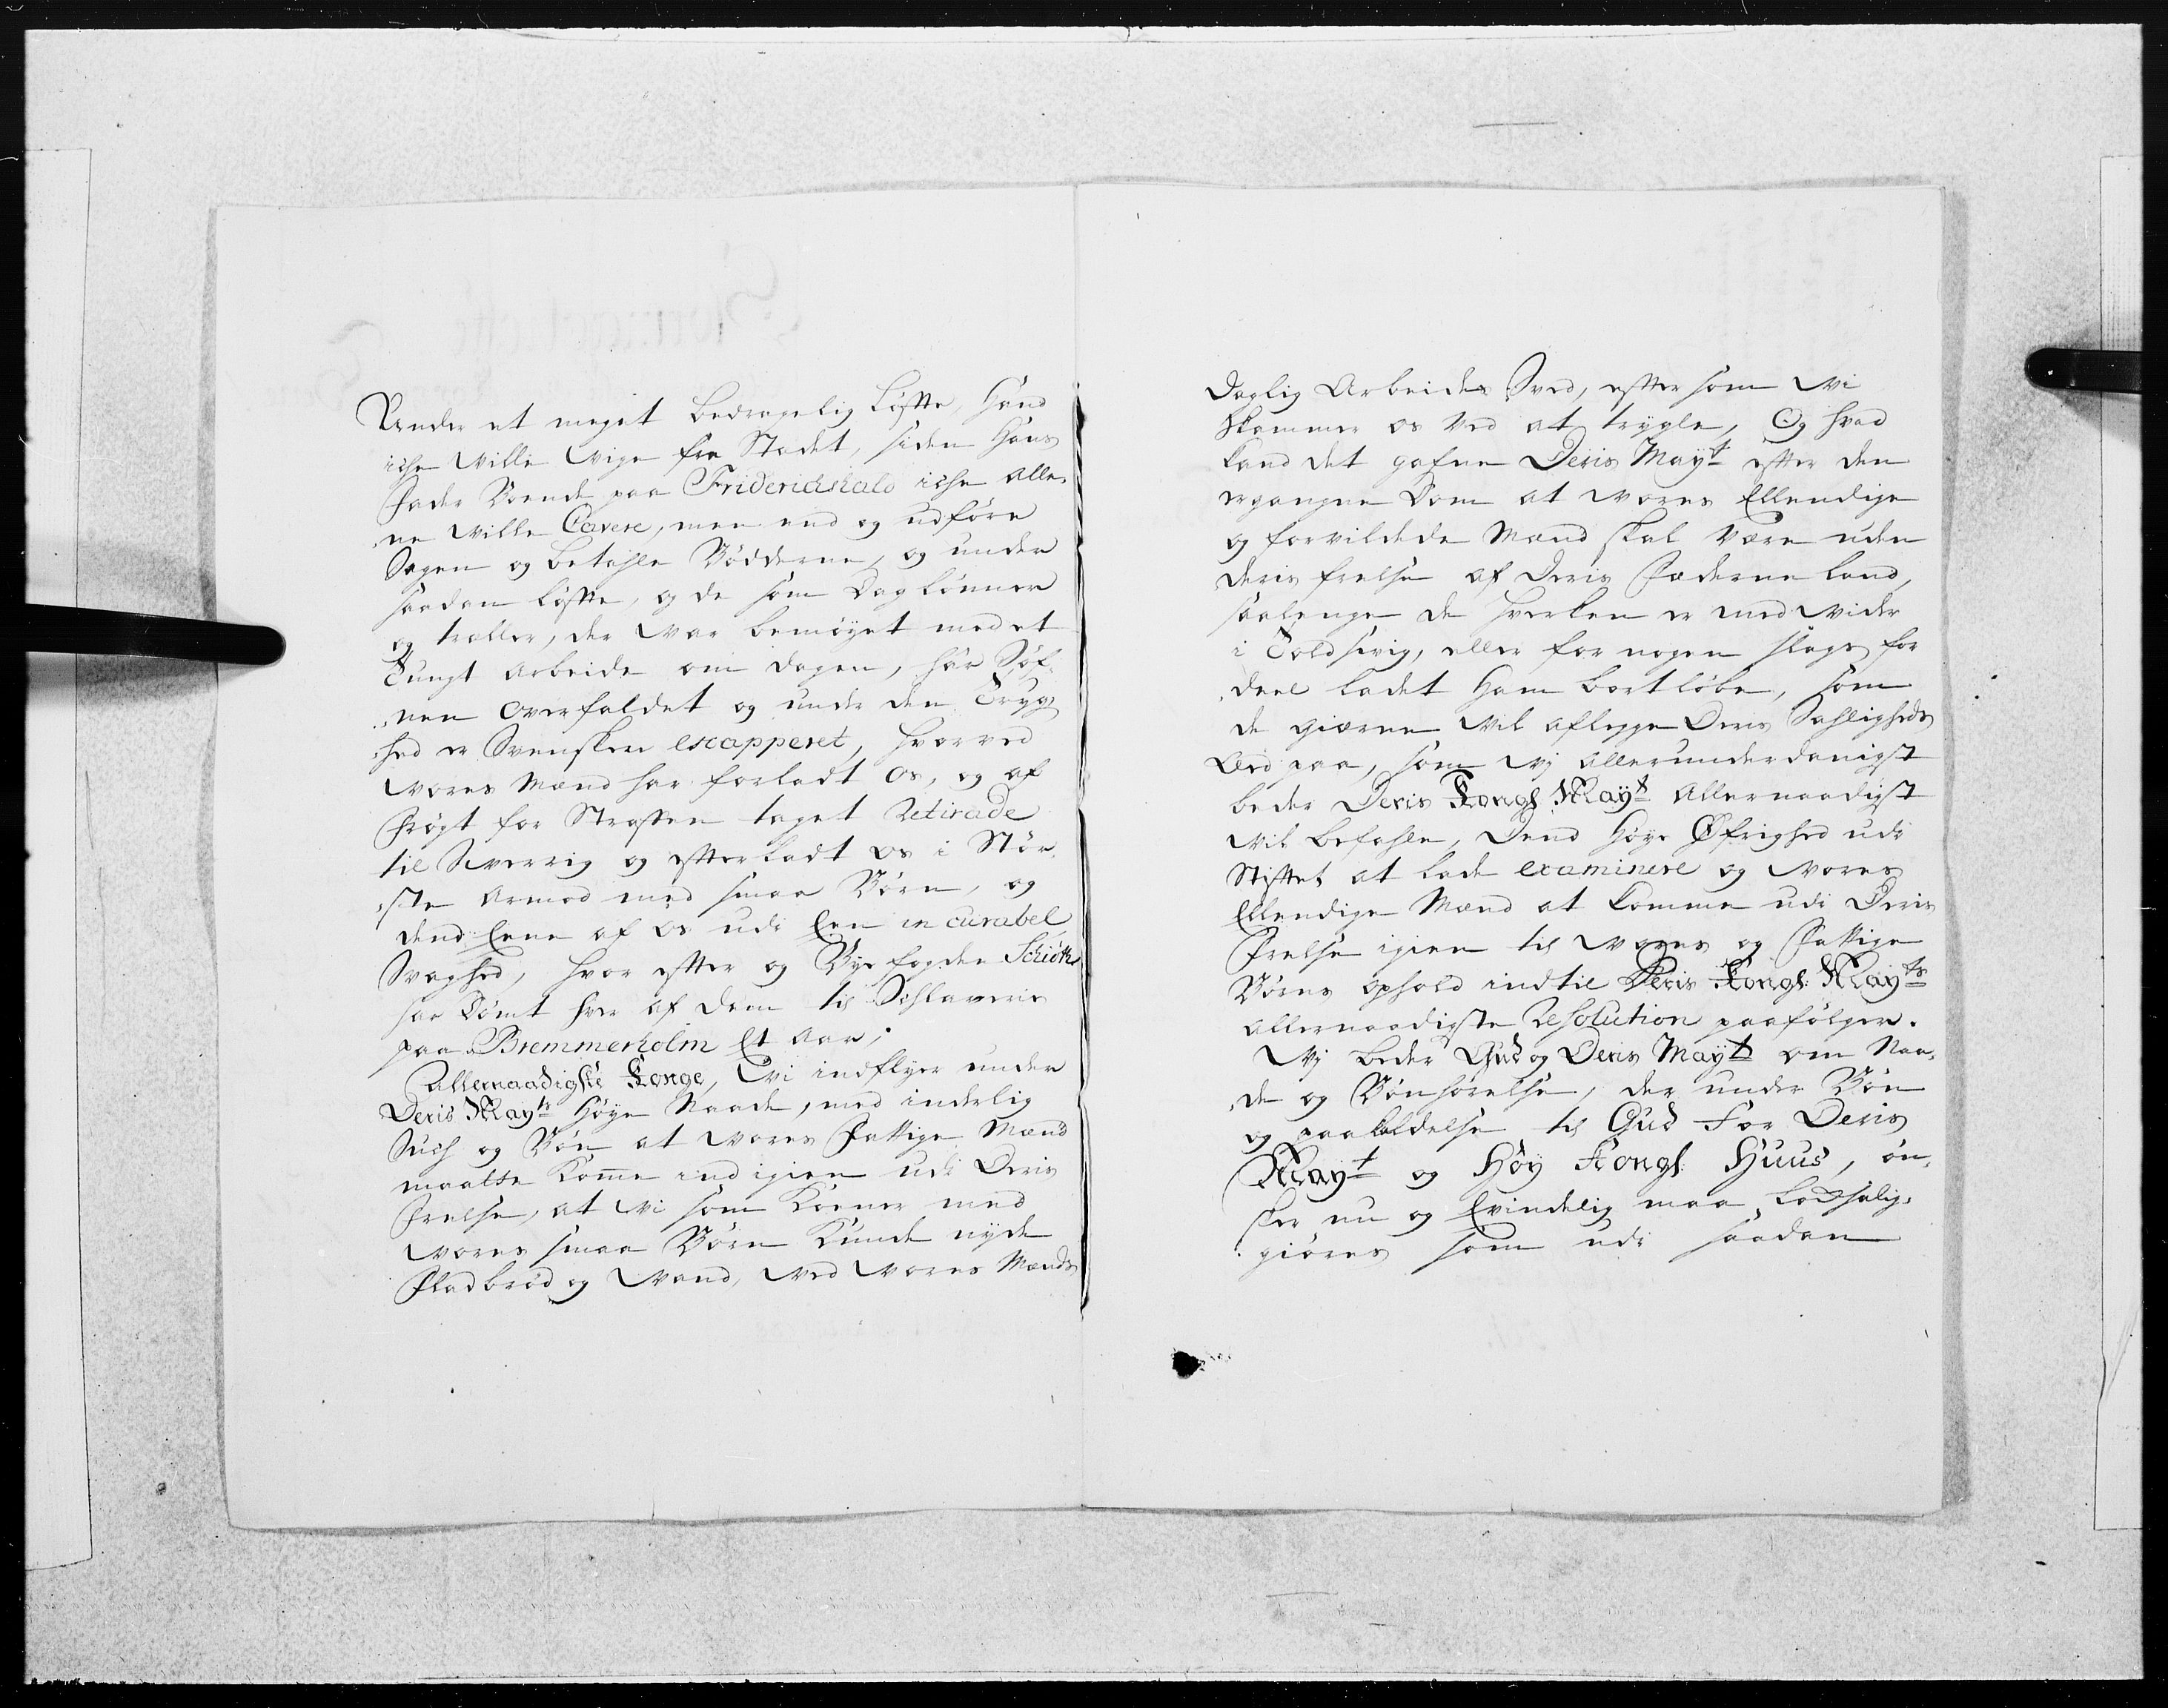 Under et meget bedragelig Løffte, Hand
iche Ville Vige fra Stadet, siden Hans
Fader Boende paa Fridericshald iche alle-
ne Ville Cavere, men end og udføre
Sagen og betahle Bødderne, og under
saadan Løffte, og de som Daglønner
og træller, der Var bemøyet med et
Tungt Arbeide om dagen, har Søf-
nen Overfaldet og under den Tryg-
hed er Svensken escapperet, hvorved
Vores Mænd har forladt os, og af
Frøgt for Straffen taget Retirade
til Sverrig og efterladt os i Stør-
ste Armod med smaa Børn, og
dend Eene af os udi Een incurabel
Svaghed, hvor effter og Byefogden Schiøth
har Dømt hver af dem til Schlaverie
paa Bremmerholm Et Aar;
Allernaadigste Konge, Vi indflyer under
Deris Mayts Høye Naade, med inderlig
Such og Bøn at Vores Fattige Mænd
maatte Komme ind igien udi Deris
Frelse, at Vi som Koener med
Vores smaa Børn Kunde nyde
Fladbrød og Vand, Ved Vores Mænds
Daglig Arbeides Sved, effter som Vi
skammer os Ved at trygle, Og hvad
kand det gafne Deris Mayt effter den
ergangne Dom at Vores Ellendige
og forvildede Mænd skal Være uden
deris frelse af Deris Fæderne Land,
saalenge de hverken er med Vider
i Told svig, eller for nogen slags for-
deel ladet Ham bortløbe, som
de gierne Vil aflegge Deris Sahligheds
Eed paa, som Vj Allerunderdanigst
beder Deris Kongl Mayt Allernaadigst
Vil befahle, Dend Høye Øfrighed udi
Stiftet at lade examinere og Vores
Ellendige Mænd at komme udi Deris
Frelse igien til Vores og Fattige
Børns ophold indtil Deris Kongl: Mayts
allernaadigste Resolution paafølger.
Vj beder Gud og Deris Mayt om Naa-
de og Bønhørelse, der under Bøn
og paakaldelse til Gud For Deris
Mayt og Høy Kongl: Huus, øn-
sker nu og Evindelig maa Lodsalig-
giøres som udi saadan